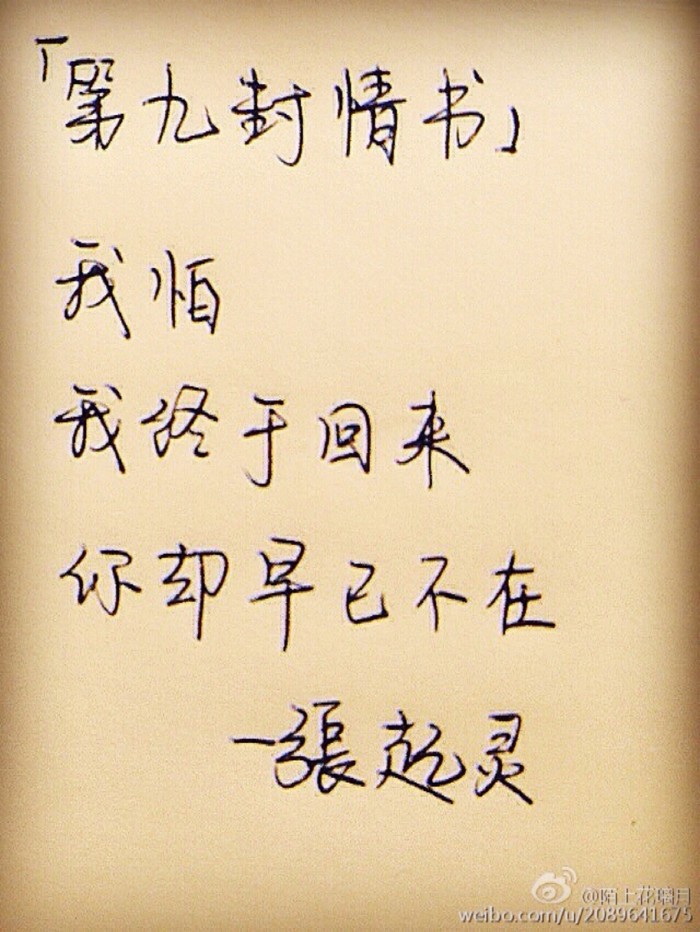 「第九封情书」
我怕
我终于回来
你却早已不在
—張起灵
@陌上花璃月
weibo.com/u/2089641675